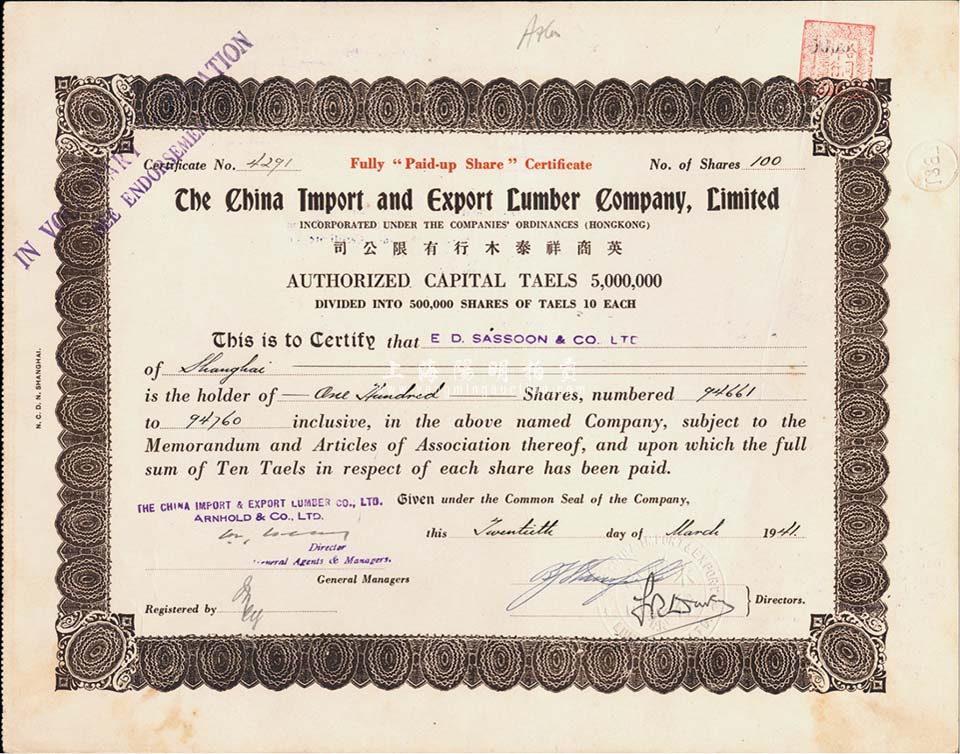 IN VOLUNTARY
SEE ENDORSEMENT
Certificate No. 4291 Fully "Paid-up Share" Certificate No. of Shares 100
The China Import and Export Lumber Company, Limited
INCORPORATED UNDER THE COMPANIES' ORDINANCES (HONGKONG)
司公限有行木泰祥商英
AUTHORIZED CAPITAL TAELS 5,000,000
DIVIDED INTO 500,000 SHARES OF TAELS 10 EACH
This is to Certify that E. D. SASSOON & CO. LTD
of Shanghai
上海陽明拍賣
is the holder of One Hundred Shares, numbered 94661
to 94760 inclusive, in the above named Company, subject to the
Memorandum and Articles of Association thereof, and upon which the full
sum of Ten Taels in respect of each share has been paid.
THE CHINA IMPORT & EXPORT LUMBER CO., LTD.
ARNHOLD & CO., LTD.
Given under the Common Seal of the Company,
this Twentieth day of March 1941.
Director
General Agents & Managers.
General Managers
Registered by
Directors.
N. C. D. N. SHANGHAI.